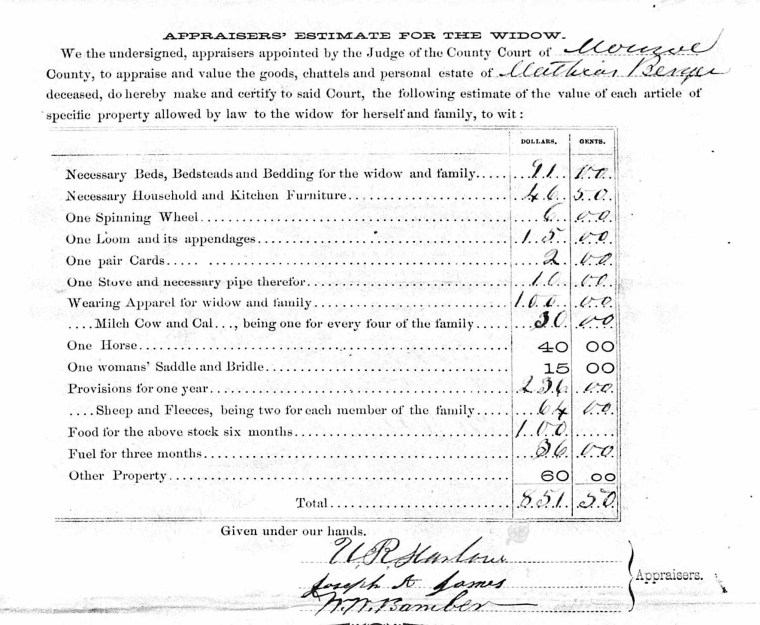 APPRAISERS' ESTIMATE FOR THE WIDOW.
We the undersigned, appraisers appointed by the Judge of the County Court of Monroe
County, to appraise and value the goods, chattels and personal estate of Mathias Berger
deceased, do hereby make and certify to said Court, the following estimate of the value of each article of
specific property allowed by law to the widow for herself and family, to wit:
DOLLARS. CENTS.
Necessary Beds, Bedsteads and Bedding for the widow and family..... 91 00
Necessary Household and Kitchen Furniture..... 46 50
One Spinning Wheel..... 6 00
One Loom and its appendages..... 15 00
One pair Cards..... 2 00
One Stove and necessary pipe therefor..... 10 00
Wearing Apparel for widow and family..... 100 00
....Milch Cow and Cal..., being one for every four of the family..... 30 00
One Horse..... 40 00
One womans' Saddle and Bridle..... 15 00
Provisions for one year..... 236 00
....Sheep and Fleeces, being two for each member of the family..... 64 00
Food for the above stock six months..... 100
Fuel for three months..... 36 00
Other Property..... 60 00
Total..... 851 50
Given under our hands.
R Harlow
Joseph A James
W. W. Bamber
Appraisers.